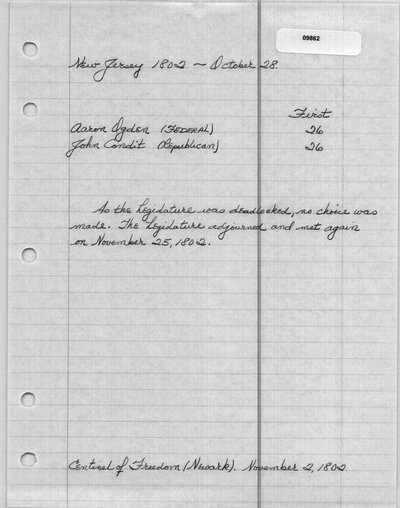 09862
New Jersey 1802 ~ October 28.
First
Aaron Ogden (FEDERAL) 26
John Condit (Republican) 26
As the legislature was deadlocked, no choice was
made. The legislature adjourned and met again
on November 25, 1802.
Centinel of Freedom (Newark). November 2, 1802